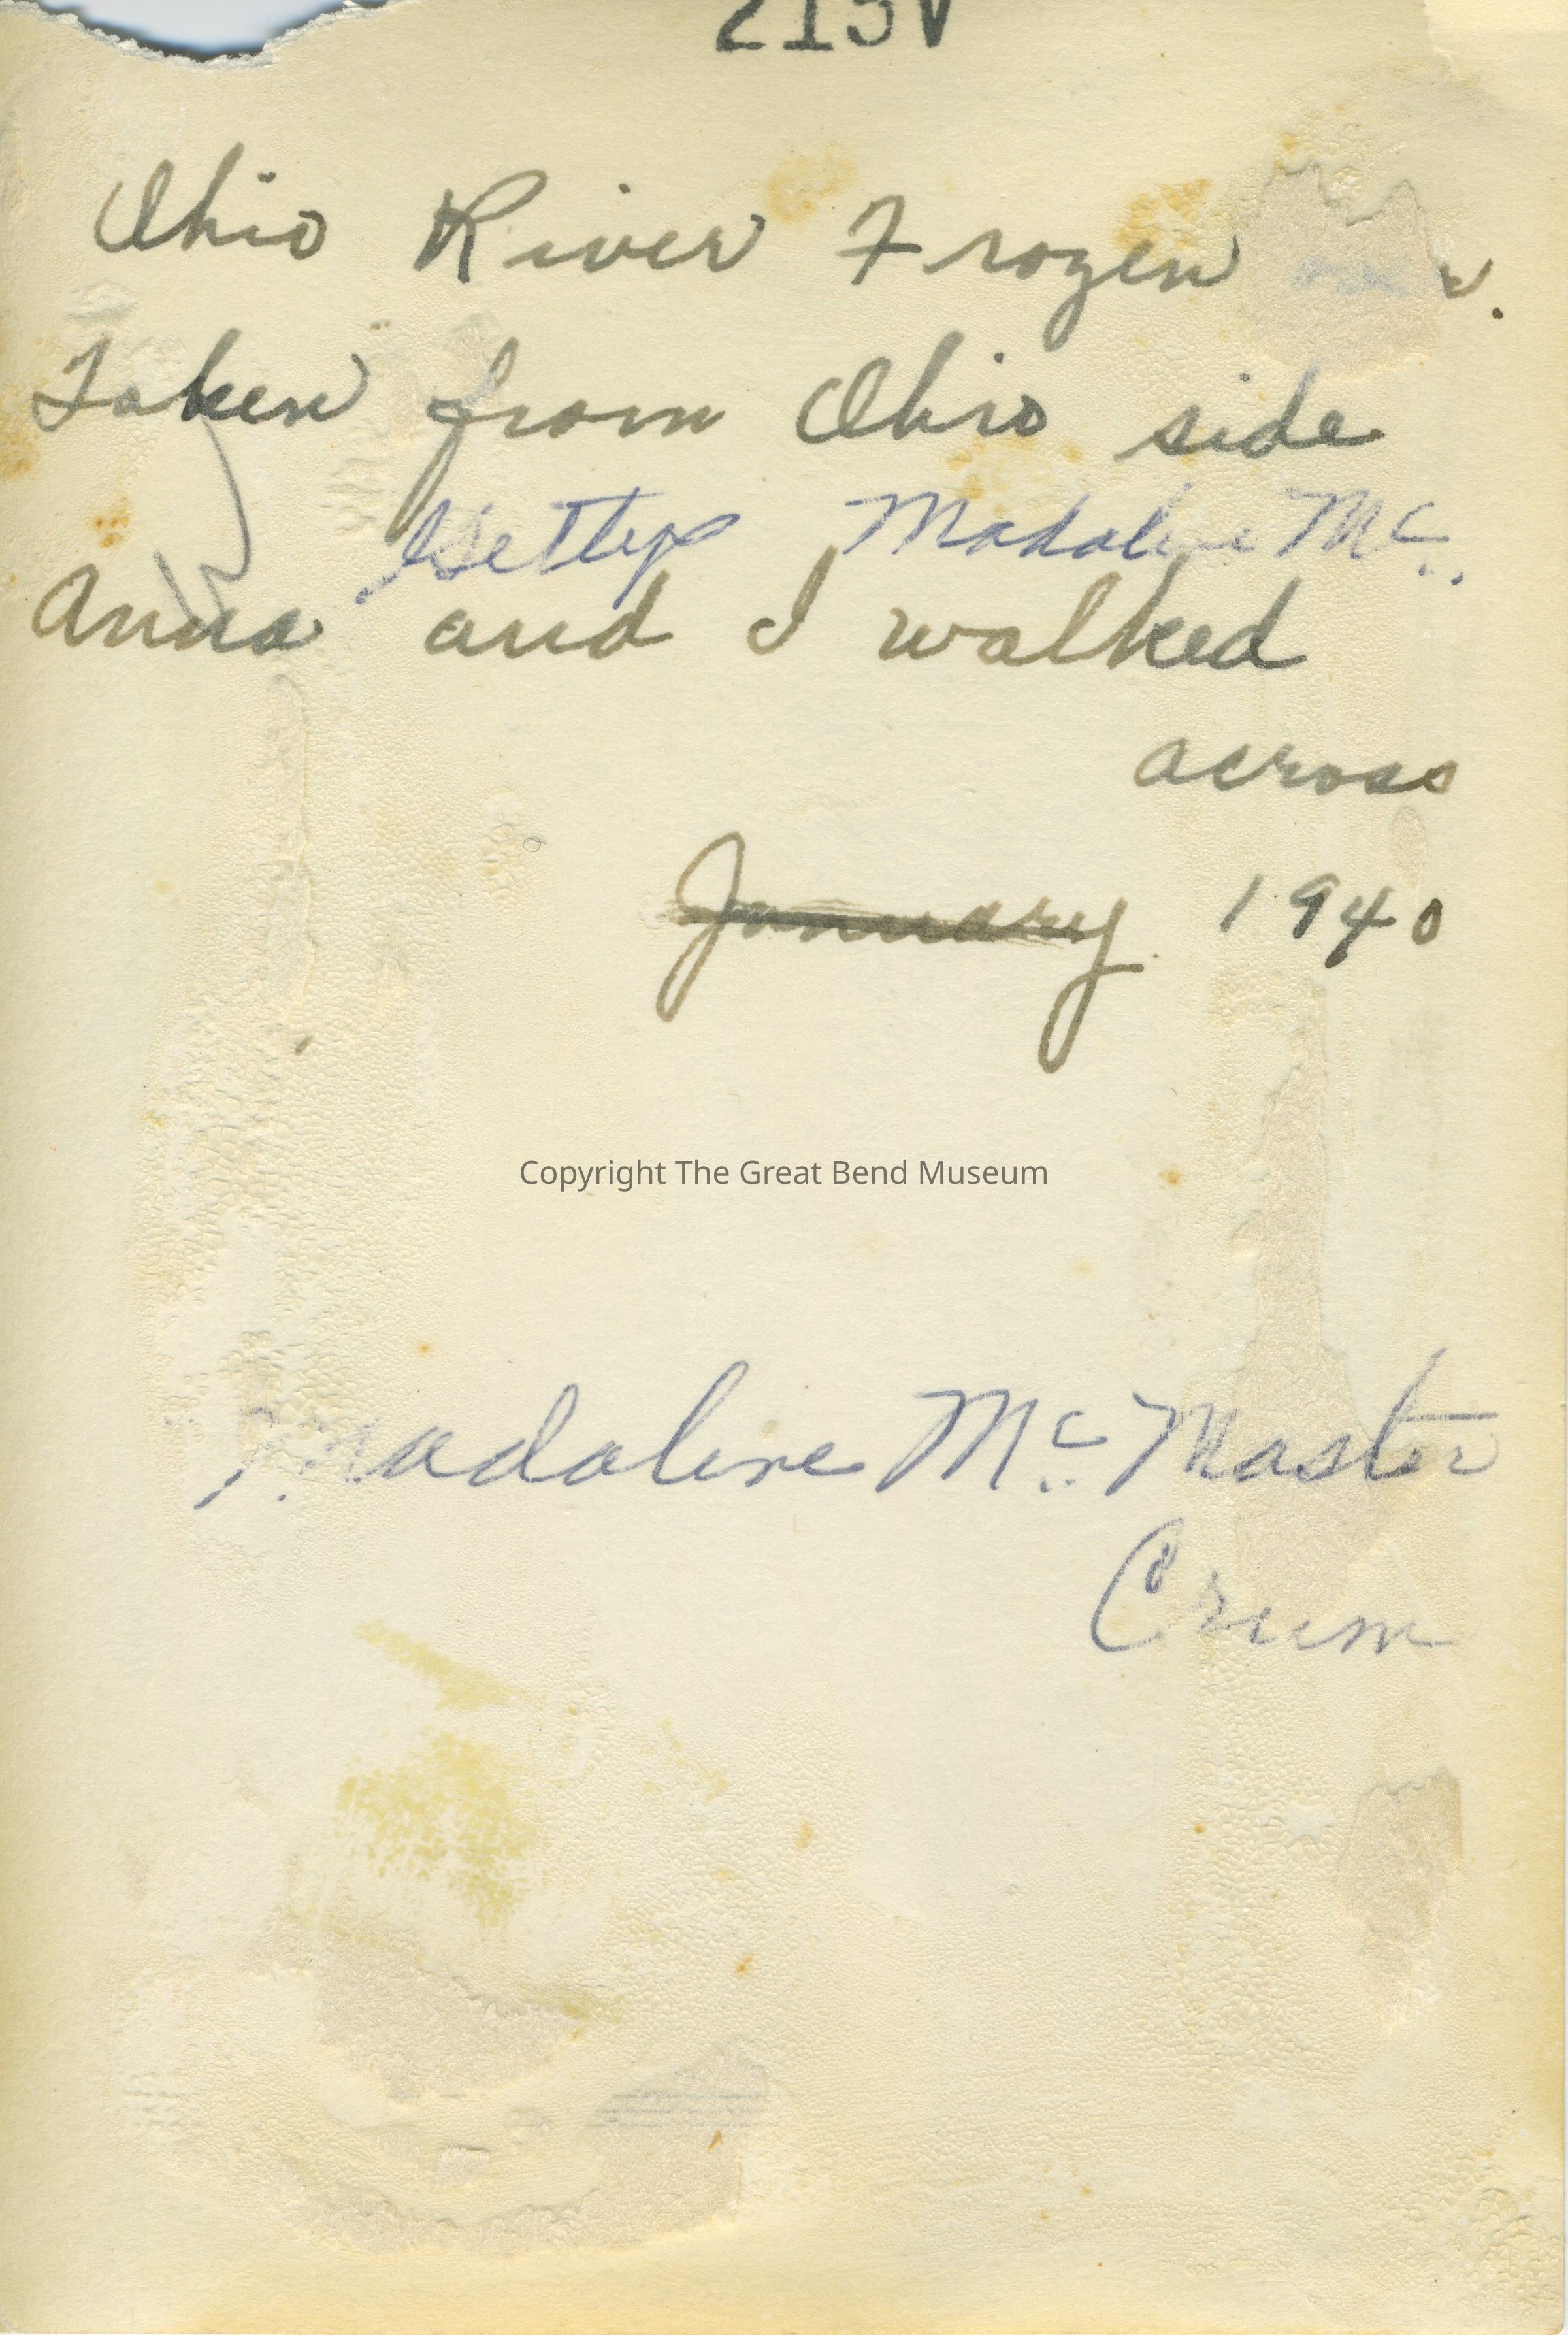 213V
Ohio River Frozen
Taken from Ohio side
Gettys Madaline Mc
Anna and I walked
across
January 1940
Copyright The Great Bend Museum
Madaline Mc Master
Crum